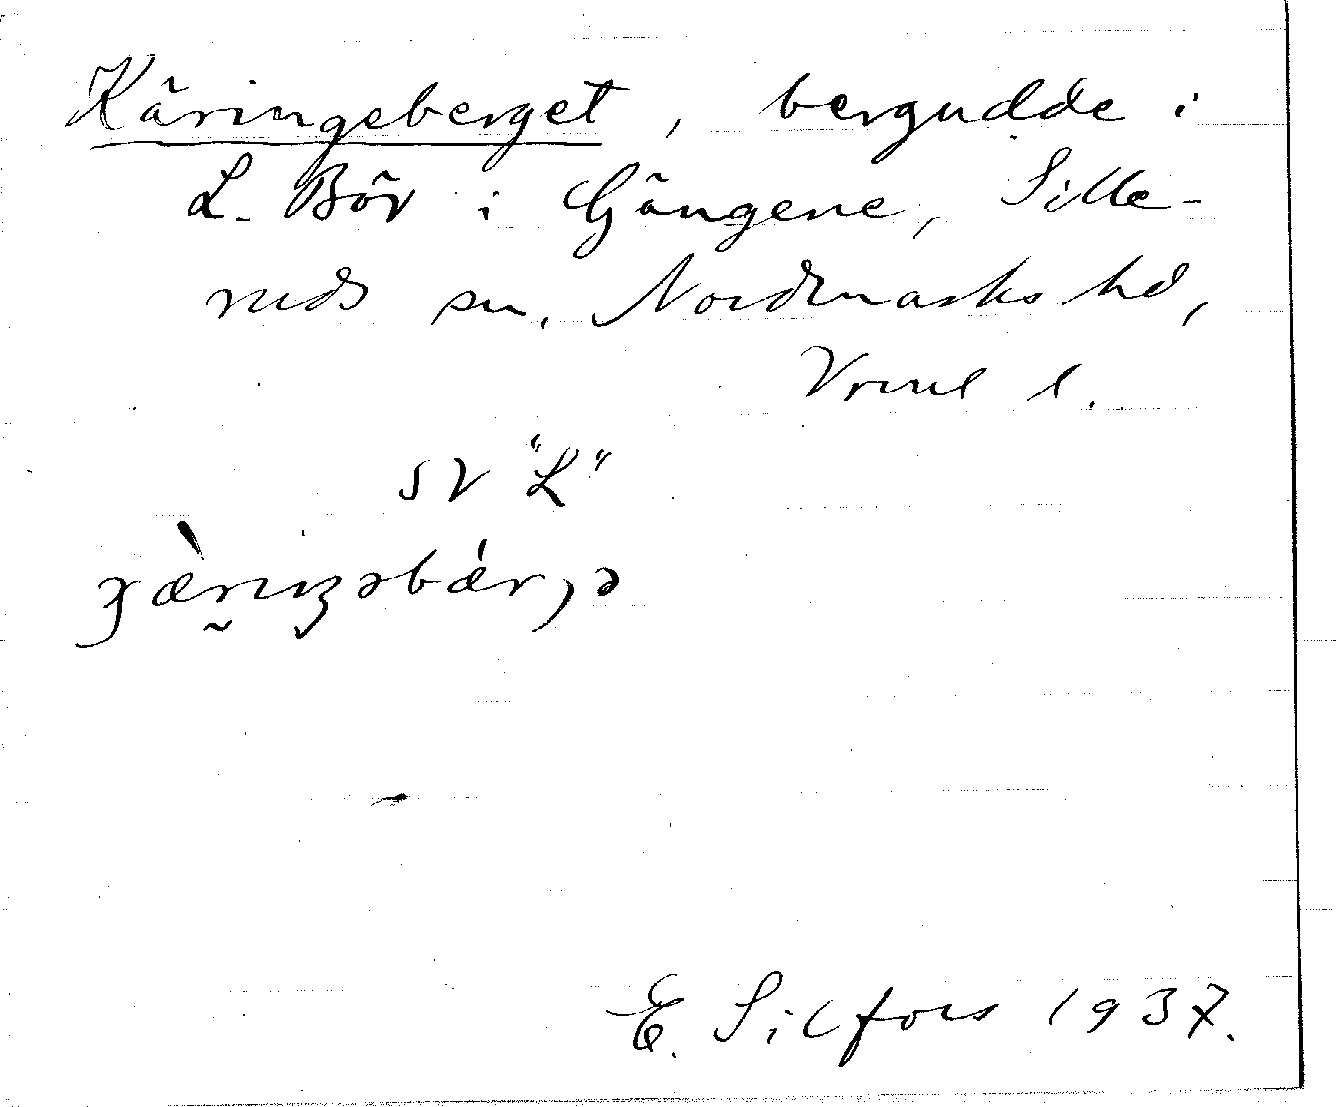 Käringeberget, bergudde i
L. Bör i Gängene, Sille-
ruds sn, Nordmarks hd,
Vrml l.
SV "L"
E. Silfors 1937.